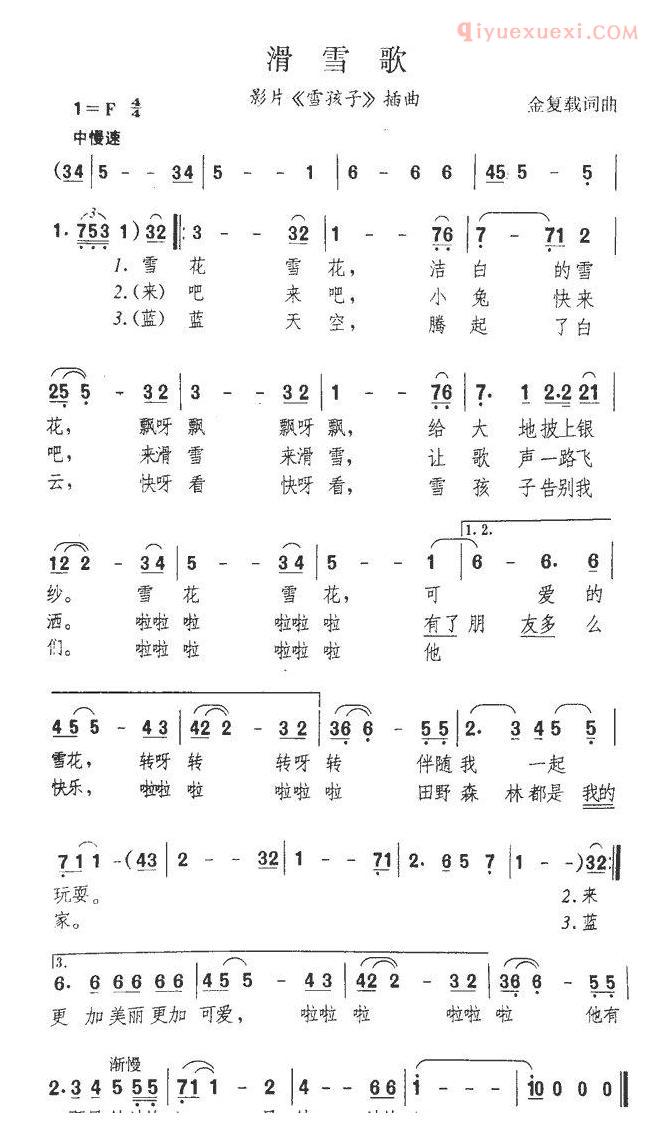 qiyuexuexi.com
滑雪歌
影片《雪孩子》插曲
1=F 4/4
金复载词曲
中慢速
(34|5 - - 34|5 - - 1|6 - 6 6|45 5 - 5|
1. 753 1) 32|:3 - - 32|1 - - 76|7 - 71 2|
1. 雪花 雪花, 洁白的雪
2.(来)吧 来吧, 小兔快来
3.(蓝)蓝 天空, 腾起了白
25 5 - 32|3 - - 32|1 - - 76|7. 1 2·2 21|
花, 飘呀飘 飘呀飘, 给大地披上银
吧, 来滑雪 来滑雪, 让歌声一路飞
云, 快呀看 快呀看, 雪孩子告别我
1.2.
12 2 - 34|5 - - 34|5 - - 1|6 - 6. 6|
纱。 雪花 雪花, 可爱的
洒。 啦啦啦 啦啦啦 有了朋友多么
们。 啦啦啦 啦啦啦 他
45 5 - 43|42 2 - 32|36 6 - 55|2. 3 45 5|
雪花, 转呀转 转呀转 伴随我一起
快乐, 啦啦啦 啦啦啦 田野森林都是我的
7 1 1 -(43|2 - - 32|1 - - 71|2. 6 5 7|1 - -)32:|
玩耍。 2.来
家。 3.蓝
3.
6. 6 66 66|45 5 - 43|42 2 - 32|36 6 - 55|
更加美丽更加可爱, 啦啦啦 啦啦啦 他有
渐慢
2. 3 4 5 55|71 1 - 2|4 - - 66|i - - -|i0 0 0 0||